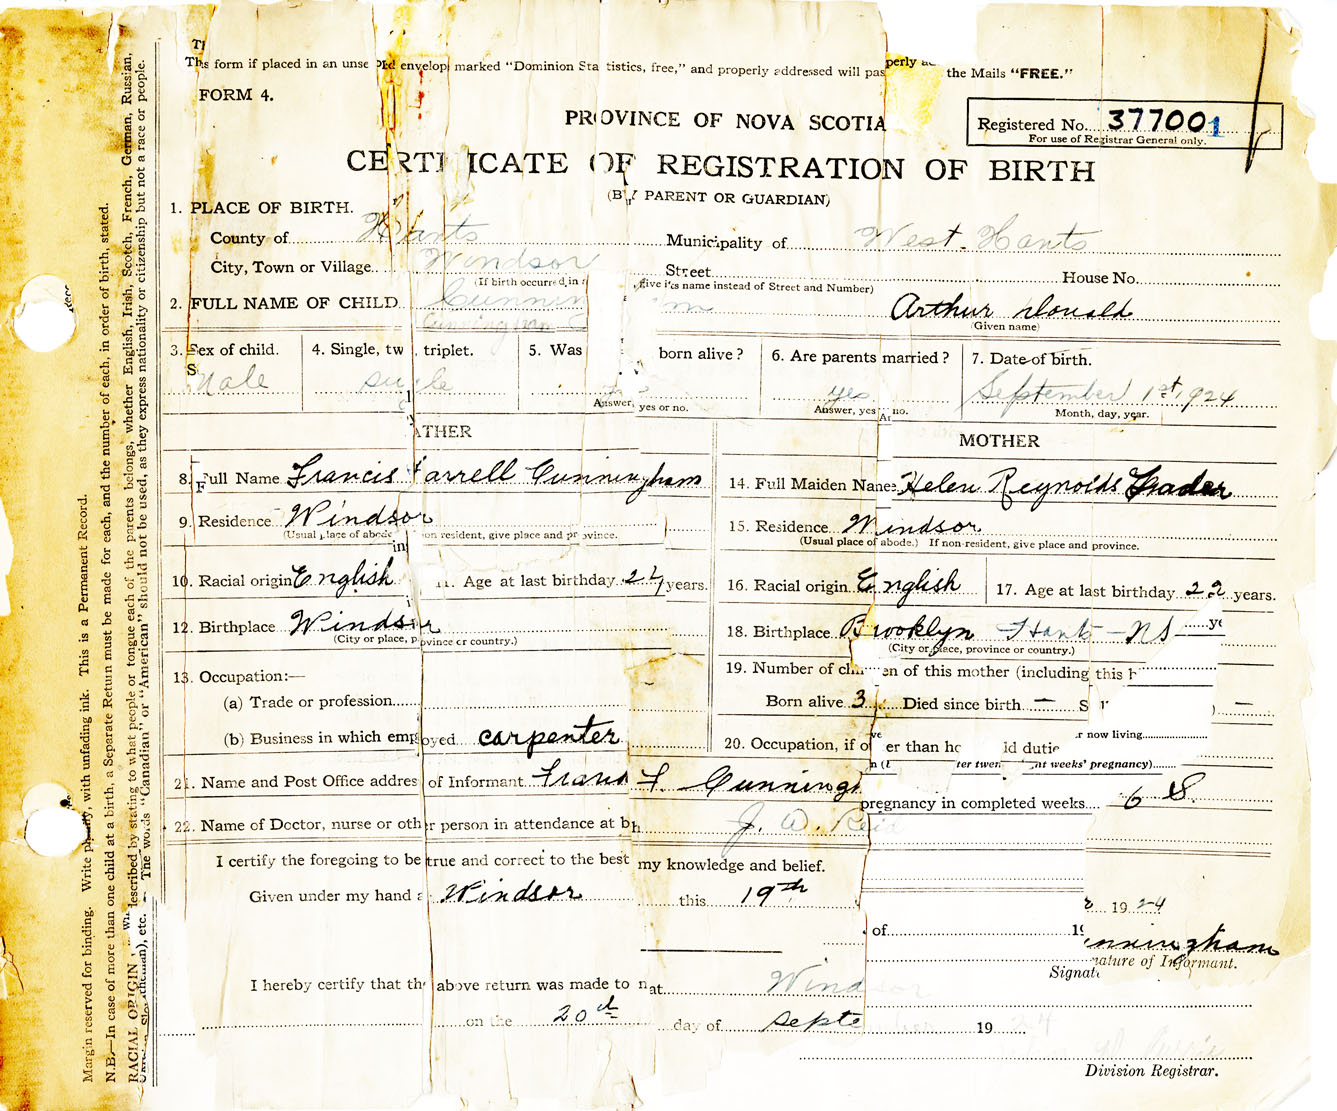 This form if placed in an unse envelop marked "Dominion Sta tistics, free," and properly addressed will pas the Mails "FREE."
FORM 4.
PROVINCE OF NOVA SCOTIA
Registered No. 377001
For use of Registrar General only.
CERTIFICATE OF REGISTRATION OF BIRTH
(BY PARENT OR GUARDIAN)
1. PLACE OF BIRTH.
County of Hants Municipality of West Hants
City, Town or Village. Windsor Street House No.
(If birth occurred in give its name instead of Street and Number)
2. FULL NAME OF CHILD Arthur Donald
(Given name)
3. Sex of child. 4. Single, tw triplet. 5. Was born alive? 6. Are parents married? 7. Date of birth.
Male single yes September 1st, 1924
Answer, yes or no. Answer, yes no. Month, day, year.
ATHER MOTHER
8. Full Name Francis Farrell Cunningham 14. Full Maiden Name Helen Reynolds
9. Residence Windsor 15. Residence Windsor
(Usual place of abode on resident, give place and province. (Usual place of abode.) If non-resident, give place and province.
10. Racial origin English 11. Age at last birthday 24 years. 16. Racial origin English 17. Age at last birthday 22 years.
12. Birthplace Windsor 18. Birthplace Brooklyn Hants - NS
(City or place, province or country.) (City or place, province or country.)
13. Occupation:— 19. Number of chi en of this mother (including this
(a) Trade or profession Born alive 3 Died since birth —
(b) Business in which employed carpenter 20. Occupation, if o er than ho ld dutie
r now living
ter twen nt weeks' pregnancy)
21. Name and Post Office addres of Informant. Frank F. Cunningh
pregnancy in completed weeks
22. Name of Doctor, nurse or other person in attendance at b J. A. Reid
I certify the foregoing to be true and correct to the best my knowledge and belief.
Given under my hand a Windsor this 19th 1924
of 19
nningham
nature of Informant.
Signat
I hereby certify that the above return was made to at Windsor
on the 20th day of September 1924
Division Registrar.
Margin reserved for binding. Write plainly, with unfading ink. This is a Permanent Record.
N.B.—In case of more than one child at a birth, a Separate Return must be made for each, and the number of each, in order of birth, stated.
RACIAL ORIGIN described by stating to what people or tongue each of the parents belongs, whether English, Irish, Scotch, French, German, Russian,
etc. — The words "Canadian" or "American" should not be used, as they express nationality or citizenship but not a race or people.